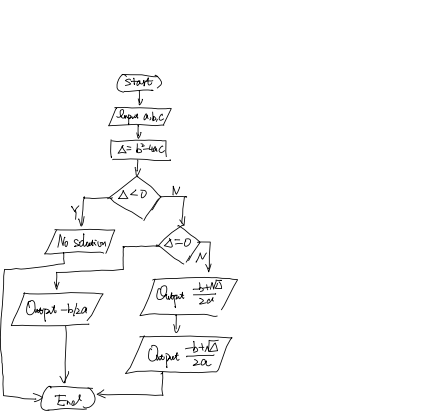 start
Input a,b,c
Δ=b²-4ac
Δ<0
N
Y
No solution
Δ=0
N
Output -b/2a
Output (-b+√Δ)/2a
Output (-b+√Δ)/2a
End